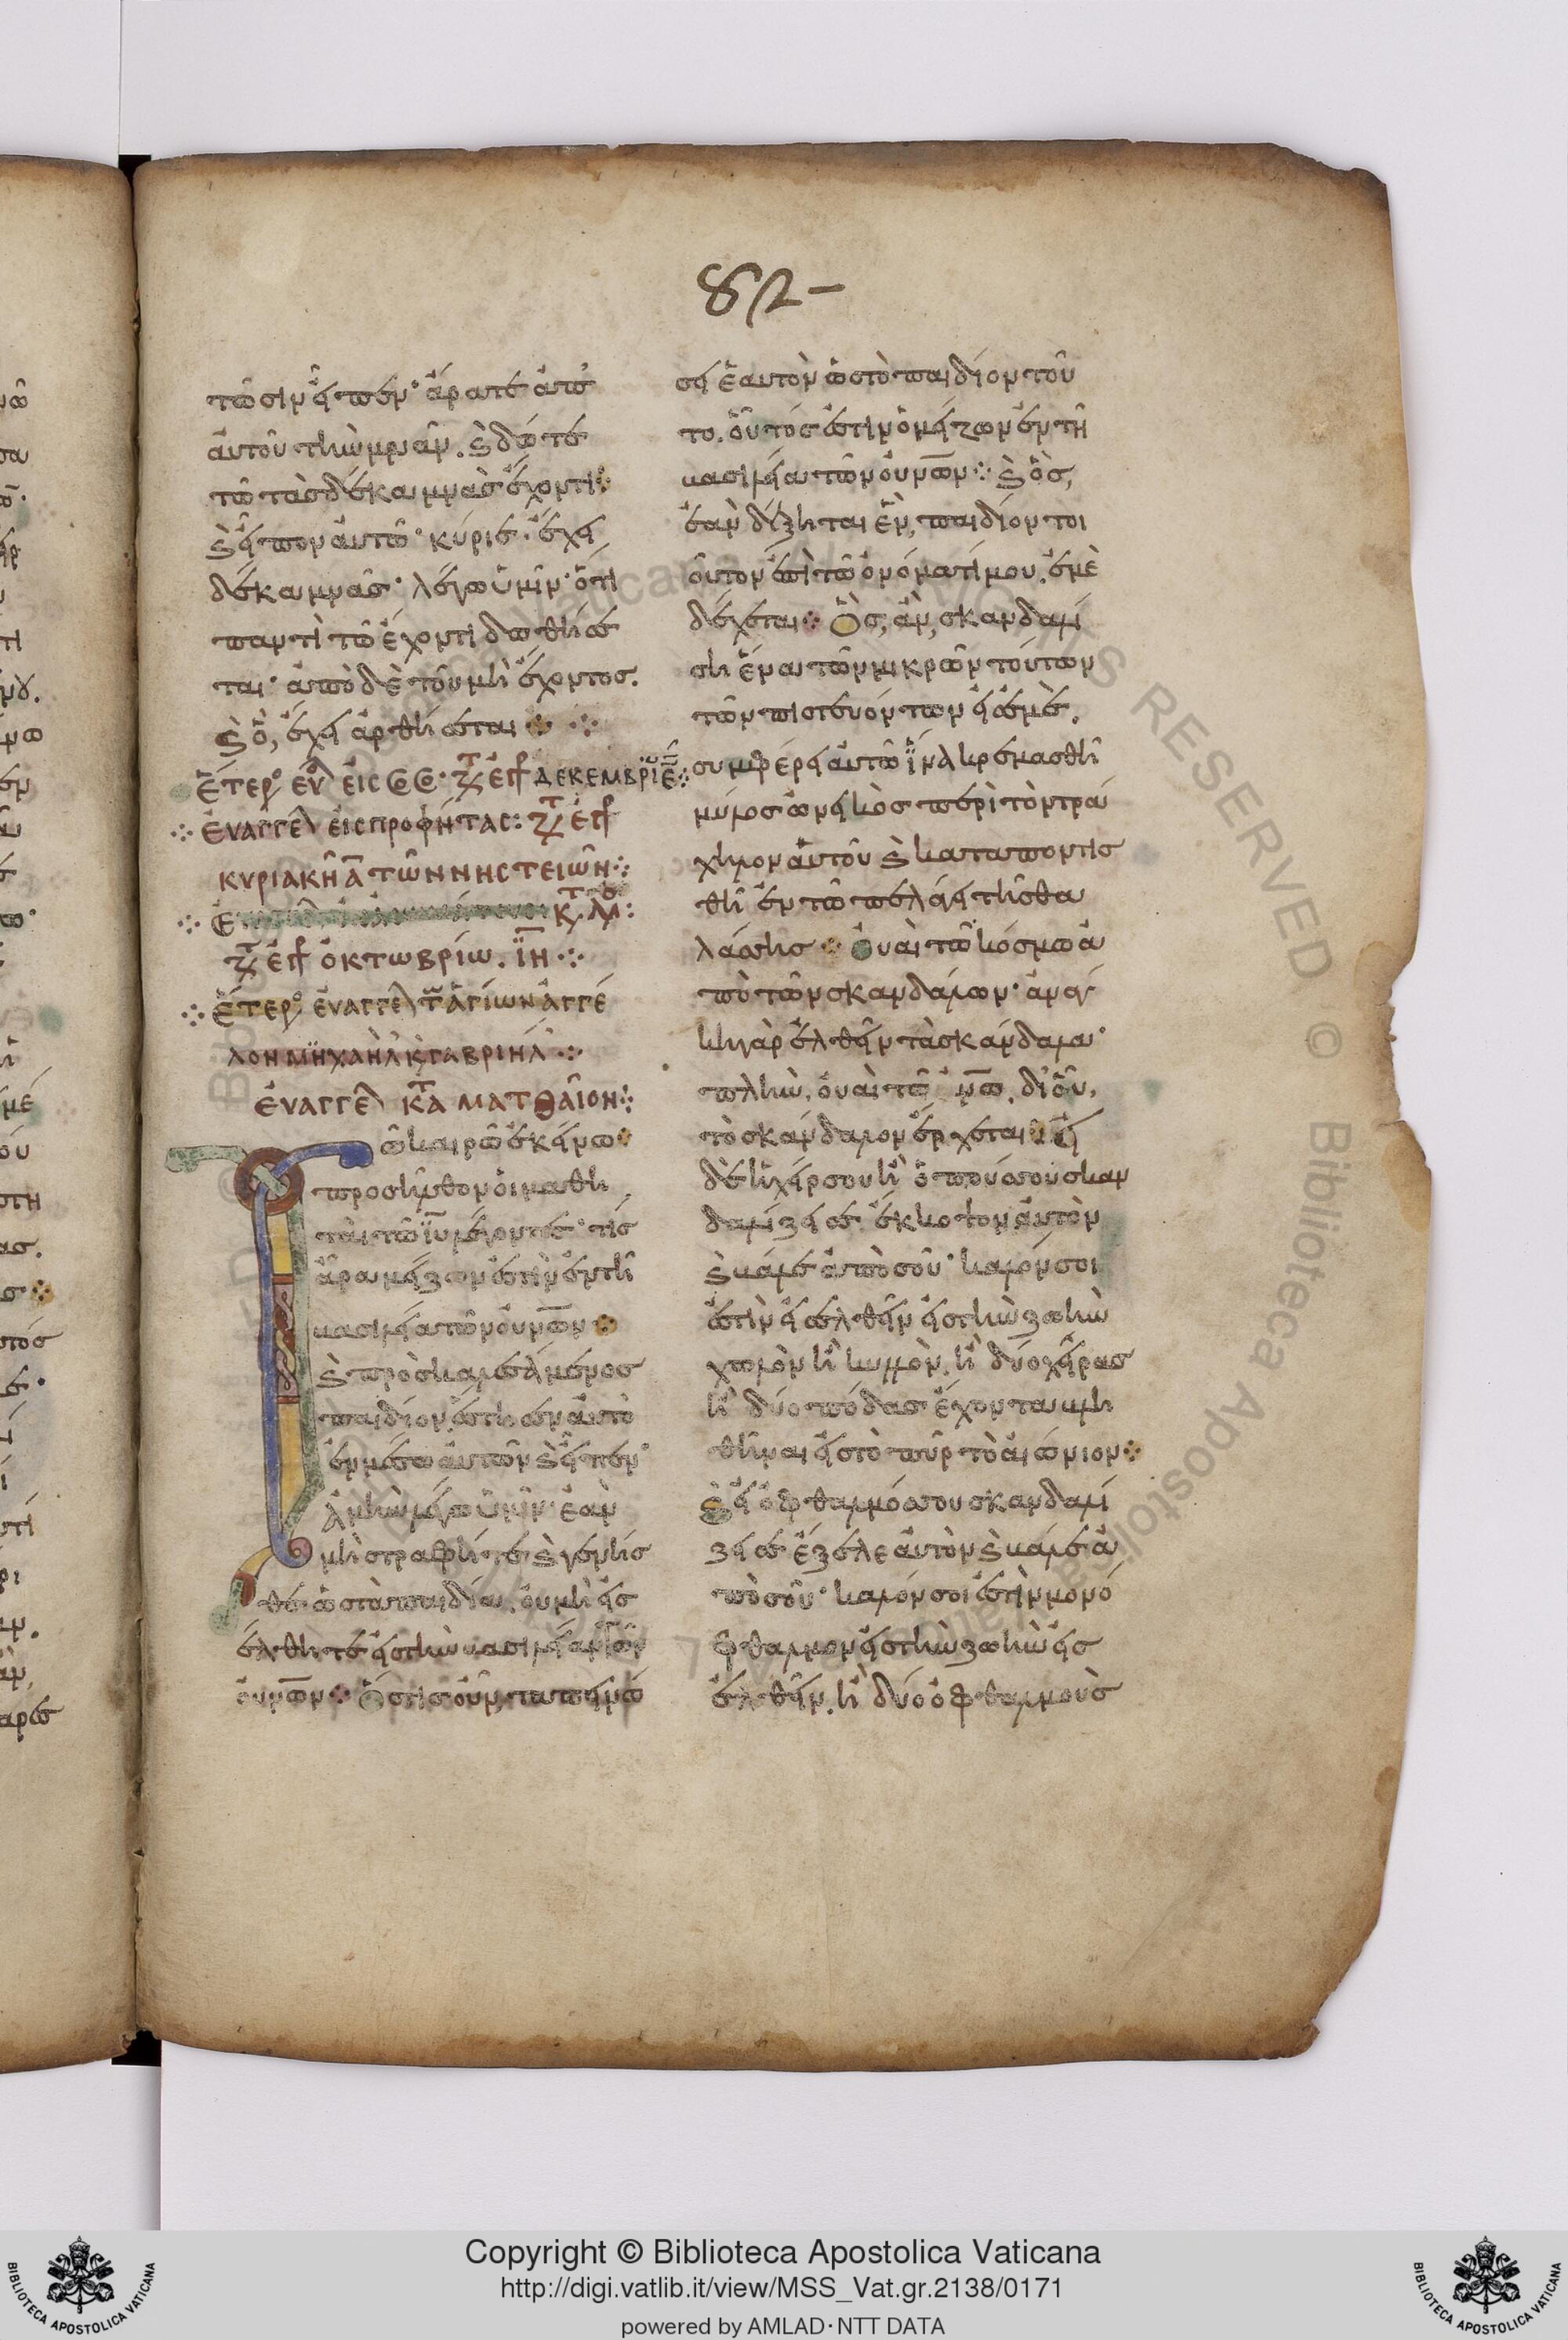 82-
τῶσιν εἶπεν· ἄρατε ἀπ᾽
αὐτοῦ τὴν μνᾶν. ϗ δότε
τῶ τὰς δέκα μνᾶς ἔχοντι
ϗ εἶπον αὐτῶ· κύριε· ἔχει
δέκα μνᾶς· λέγω ὑμῖν· ὅτι
παντὶ τῶ ἔχοντι δοθήσε
ται· ἀπὸ δὲ τοῦ μὴ ἔχοντος.
ϗ ὃ, ἔχει ἀρθήσεται
δεκεμβρίω
Εὐαγγελ εἰς προφήτας:
κυριακῆ α τῶν νηστειῶν
ὀκτωβρίω. ιη
Ἕτερο εὐαγγελ τ ἁγίων ἀγγέ
λον μηχαὴλ κ γαβριήλ
εὐαγγελ κτα ματθαῖον
Τῶ καιρῶ ἐκείνω
προσῆλθον οἱ μαθη
ταὶ τῶ ιυ λέγοντες· τίς
ἄρα μείζων ἐστὶν ἐν τῆ
βασιλεία τῶν οὐνῶν
ϗ προσκαλεσάμενος
παιδίον, ἔστησεν αὐτὸ
ἐν μέσω αὐτῶν ϗ εἶπεν·
ἀμὴν λέγω ὑμῖν· ἐὰν
μὴ στραφῆτε ϗ γένησ
θε ὡς τὰ παιδία, οὐ μὴ εἰσ
έλθητε εἰς τὴν βασιλείαν τῶν
οὐνῶν Ὅστις οὖν, ταπεινώ
σει ἑαυτὸν ὡς τὸ παιδίον τοῦ
το. οὗτός ἐστιν ὁ μείζων ἐν τῆ
βασιλεία τῶν οὐνῶν ϗ ὃς,
ἐὰν δέξηται ἓν, παιδίον τοι
οῦτον ἐπὶ τῶ ὀνόματί μου. ἐμὲ
δέχεται Ὃς, ἂν, σκανδαλί
ση ἕνα τῶν μικρῶν τούτων
τῶν πιστευόντων εἰς ἐμὲ.
συμφέρει αὐτῶ ἵνα κρεμασθῆ
μύλος ὀνικὸς περὶ τὸν τρά
χηλον αὐτοῦ ϗ καταποντισ
θῆ ἐν τῶ πελάγει τῆς θα
λάσσης Οὐαὶ τῶ κόσμω ἀ
πὸ τῶν σκανδάλων· ἀνάγ
κη γὰρ ἐλθεῖν τὰ σκάνδαλα·
πλὴν, οὐαὶ τῶ ἀνω. δι᾽ οὗ,
τὸ σκάνδαλον ἔρχεται Εἰ
δὲ ἡ χείρ σου ἢ ὁ πούς σου σκαν
δαλίζει σε ἔκκοψον αὐτὸν
ϗ βάλε ἀπὸ σοῦ· καλόν σοι
ἐστὶν εἰσελθεῖν εἰς τὴν ζωὴν
χωλὸν ἢ κυλλὸν. ἢ δύο χεῖρας
ἢ δύο πόδας ἔχοντα βλη
θῆναι εἰς τὸ πῦρ τὸ αἰώνιον
ϗ εἰ ὀφθαλμός σου σκανδαλί
ζει σε ἔξελε αὐτὸν ϗ βάλε ἀ
πὸ σοῦ· καλόν σοι ἐστὶν μονό
φθαλμον εἰς τὴν ζωὴν εἰσ
ελθεῖν. ἢ δύο ὀφθαλμοὺς
Copyright © Biblioteca Apostolica Vaticana
http://digi.vatlib.it/view/MSS_Vat.gr.2138/0171
powered by AMLAD·NTT DATA